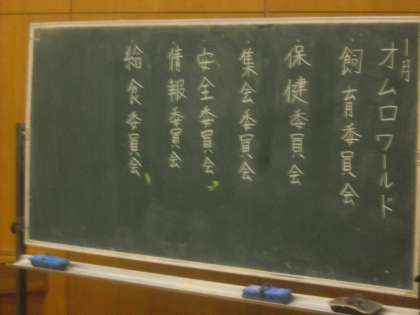 1月
オムロワールド
飼育委員会
保健委員会
集会委員会
安全委員会
情報委員会
給食委員会